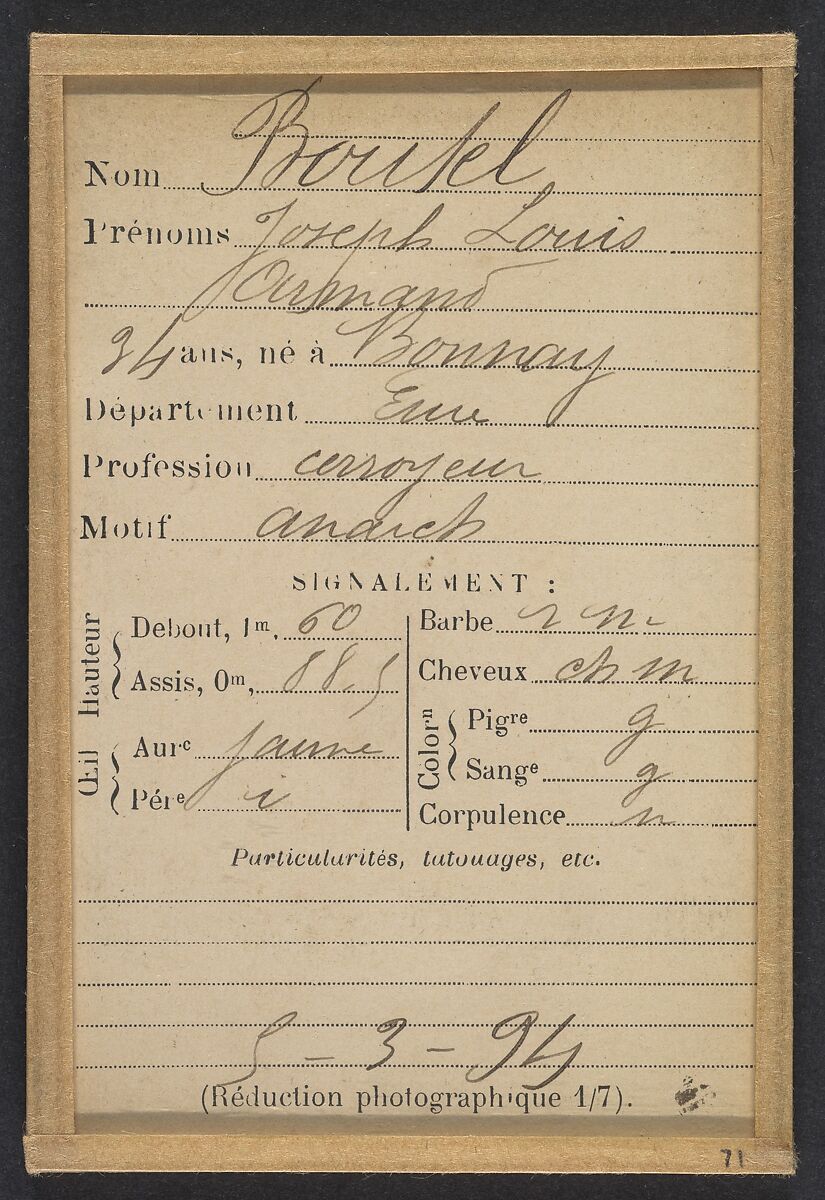 Nom Boutel
Prénoms Joseph Louis
Armand
34 ans, né à Bonnay
Département Eure
Profession corroyeur
Motif anarch
SIGNALEMENT :
Hauteur
Debout, 1m, 60
Assis, 0m, 88.5
Œil
Aurc jaune
Pére i
Barbe r m
Cheveux ch m
Colorn
Pigre g
Sange g
Corpulence
Particularités, tatouages, etc.
5-3-94
(Réduction photographique 1/7).
71